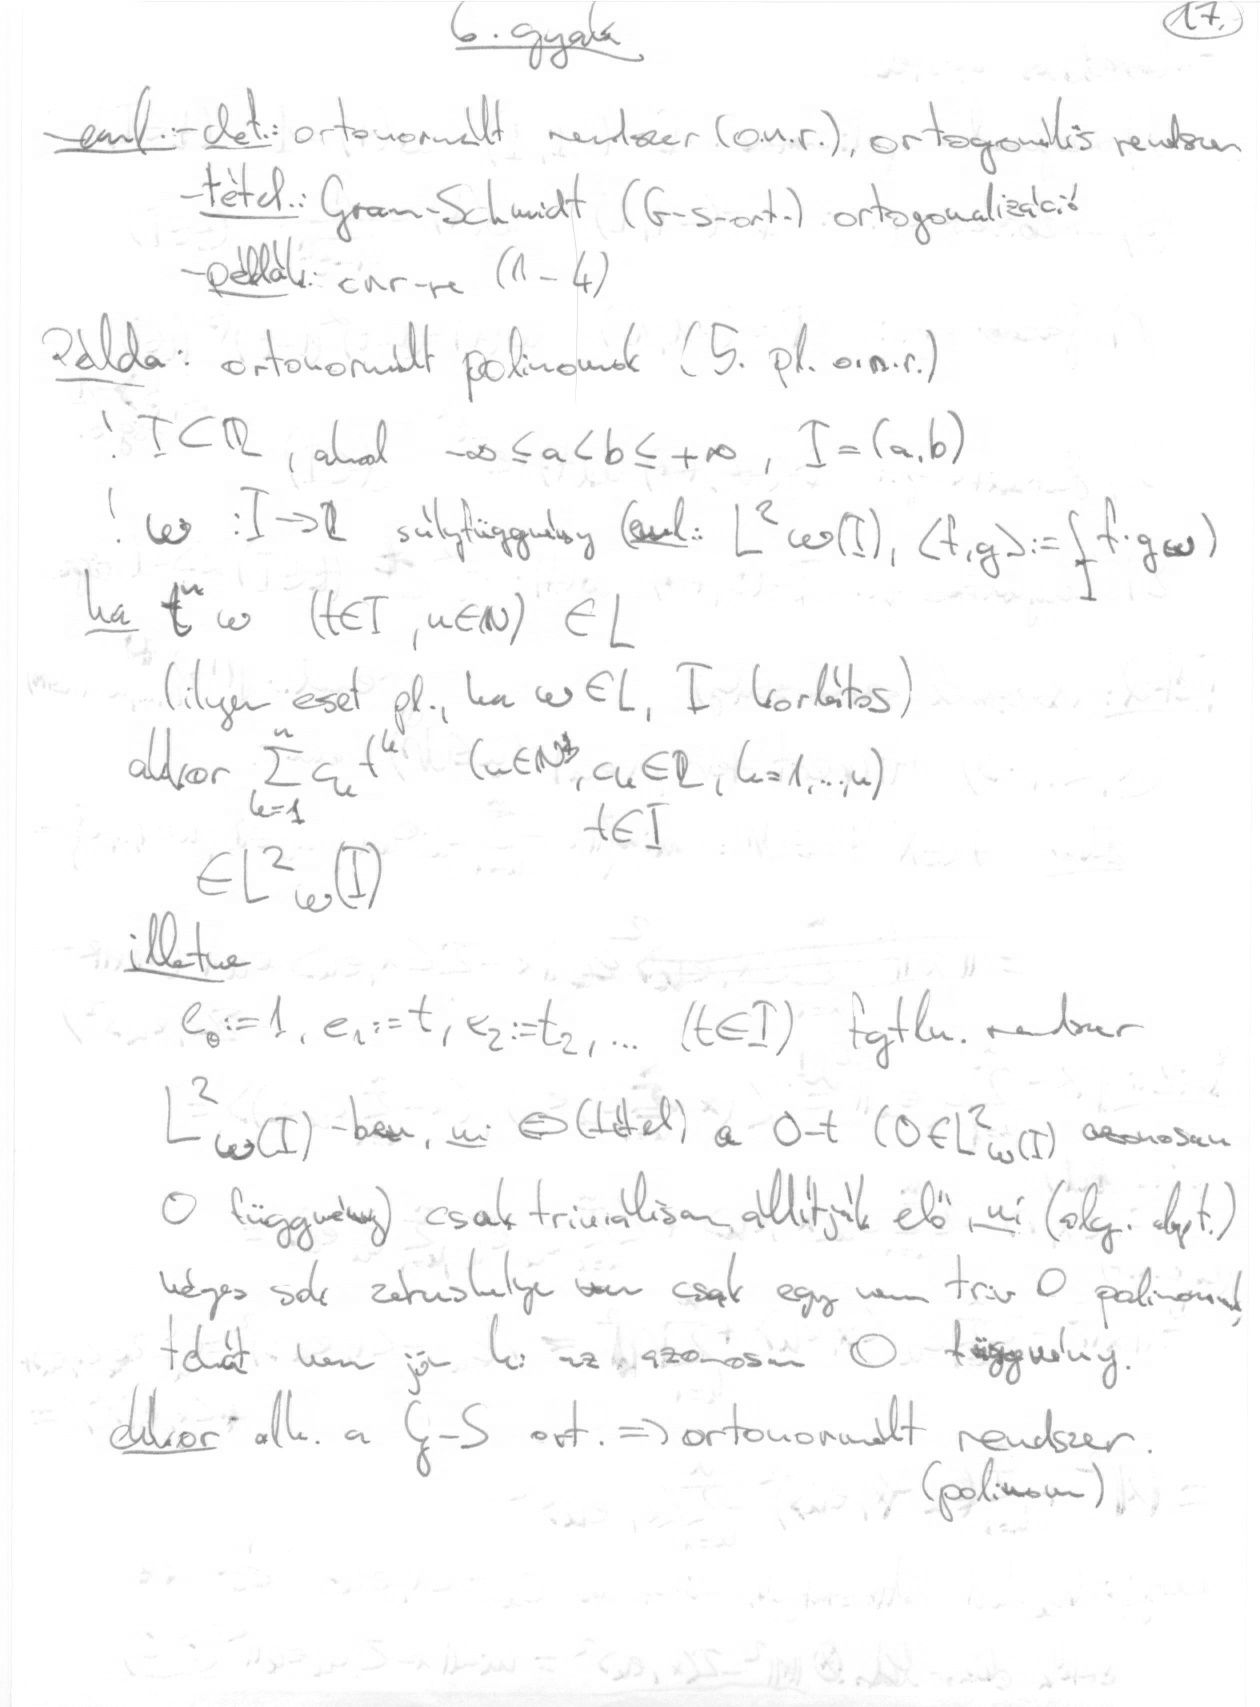 6. gyak
17.
eml.: - def.: ortonormált rendszer (o.n.r.), ortogonális rendszer
- tétel.: Gram-Schmidt (G-S-ort.) ortogonalizáció
- példák: onr-re (1-4)
Példa: ortonormált polinomok (5. pl. o.n.r.)
! I⊂ℝ, ahol -∞≤a<b≤+∞, I=(a,b)
! ω : I→ℝ súlyfüggvény (eml.: L²ω(I), ⟨f,g⟩:=∫_I f·gω)
ha tⁿω (t∈I, n∈ℕ) ∈L
(ilyen eset pl., ha ω∈L, I korlátos)
akkor Σ_{k=1}^{n} c_k t^k (n∈ℕ, c_k∈ℝ, k=1,...,n)
t∈I
∈L²ω(I)
illetve
e₀:=1, e₁:=t, e₂:=t₂, ... (t∈I) fgtln. rendszer
L²ω(I)-ben, mi ⇔ (tétel) a 0-t (0∈L²ω(I) azonosan
0 függvény) csak triviálisan állítják elő, mi (alg. alapt.)
véges sok zérushelye van csak egy nem triv 0 polinomnak,
tehát nem jön ki az azonosan 0 függvény.
ekkor alk. a G-S ort. ⇒ ortonormált rendszer.
(polinom)